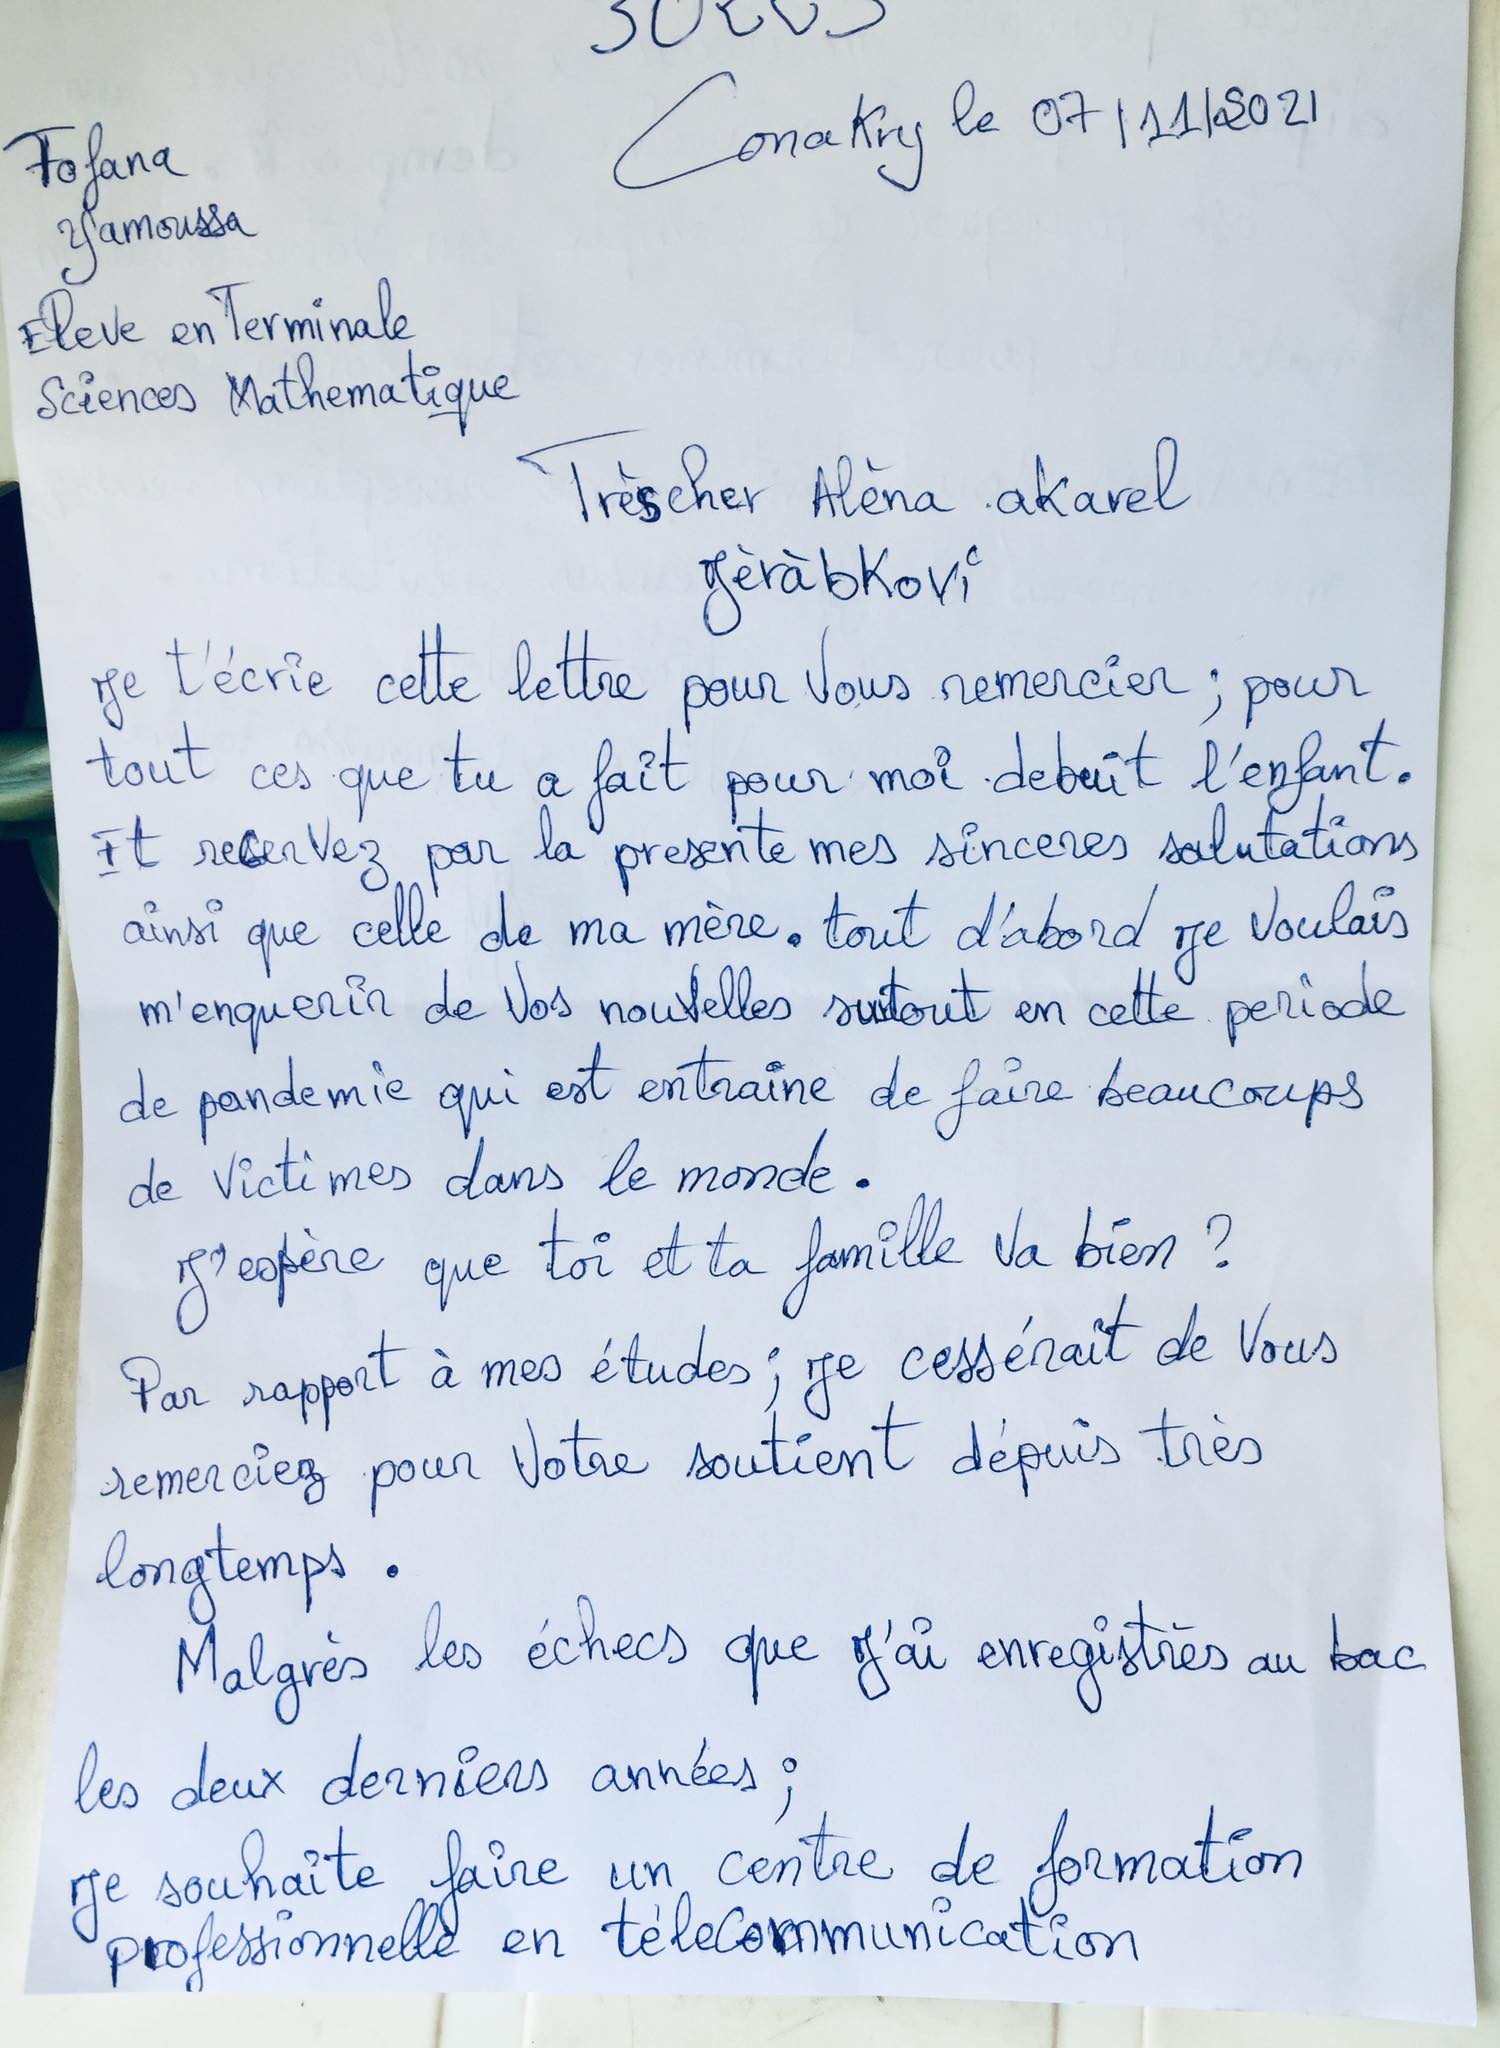 Conakry le 07/11/2021
Fofana
Yamoussa
Eleve en Terminale
Sciences Mathematique
Très cher Alèna akarel
Jèràbkovi
Je t'écrie cette lettre pour Vous remercier; pour
tout ces que tu a fait pour moi debuit l'enfant.
Et recervez par la presente mes sinceres salutations
ainsi que celle de ma mère. tout d'abord je Voulais
m'enquerir de Vos nouvelles surtout en cette periode
de pandemie qui est entraine de faire beaucoups
de Victimes dans le monde.
J'espère que toi et ta famille Va bien ?
Par rapport à mes études; je cessérait de Vous
remerciez pour Votre soutient dépuis très
longtemps.
Malgrès les échecs que j'ai enregistrès au bac
les deux derniers années;
Je souhaite faire un centre de formation
professionnelle en télecommunication